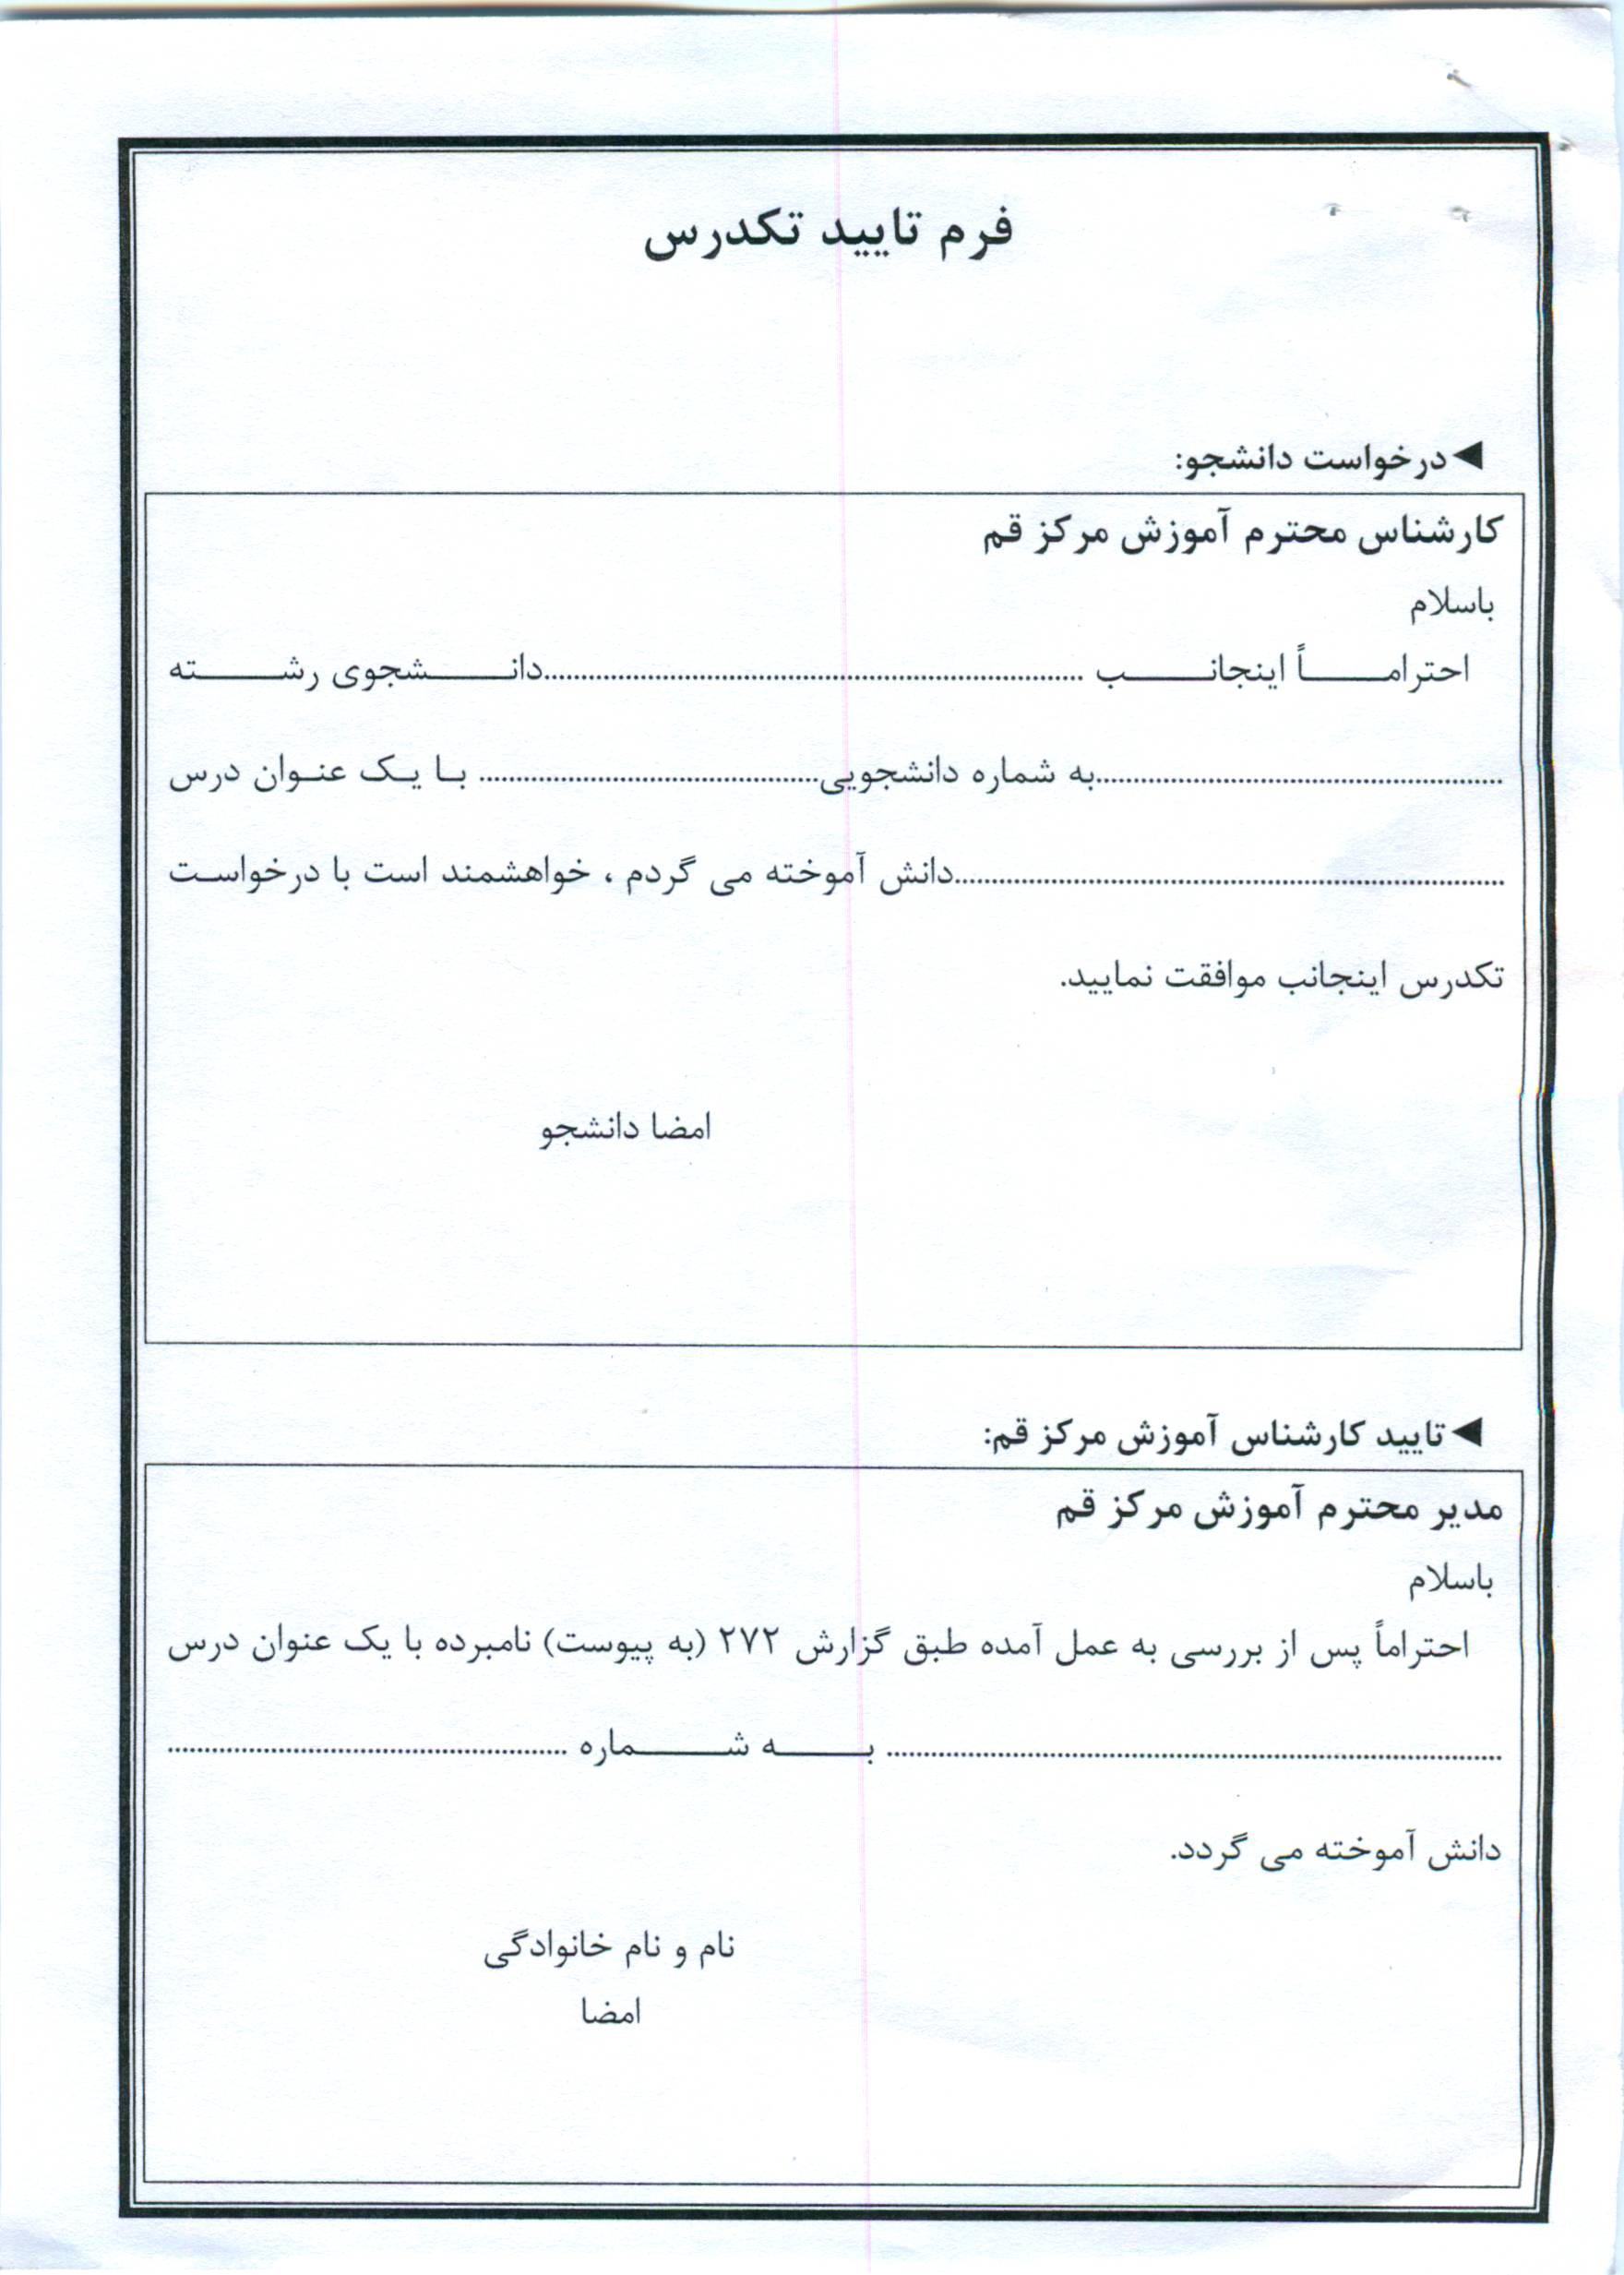 فرم تایید تکدرس
◄درخواست دانشجو:
کارشناس محترم آموزش مرکز قم
باسلام
احترامـــــاً اینجانـــــب ......................................................دانـــــشجوی رشـــــته
..........................................به شماره دانشجویی................................... بـا یـک عنـوان درس
........................................................دانش آموخته می گردم ، خواهشمند است با درخواسـت
تکدرس اینجانب موافقت نمایید.
امضا دانشجو
◄تایید کارشناس آموزش مرکز قم:
مدیر محترم آموزش مرکز قم
باسلام
احتراماً پس از بررسی به عمل آمده طبق گزارش ۲۷۲ (به پیوست) نامبرده با یک عنوان درس
.............................................................. بـــــه شـــــماره ........................................
دانش آموخته می گردد.
نام و نام خانوادگی
امضا